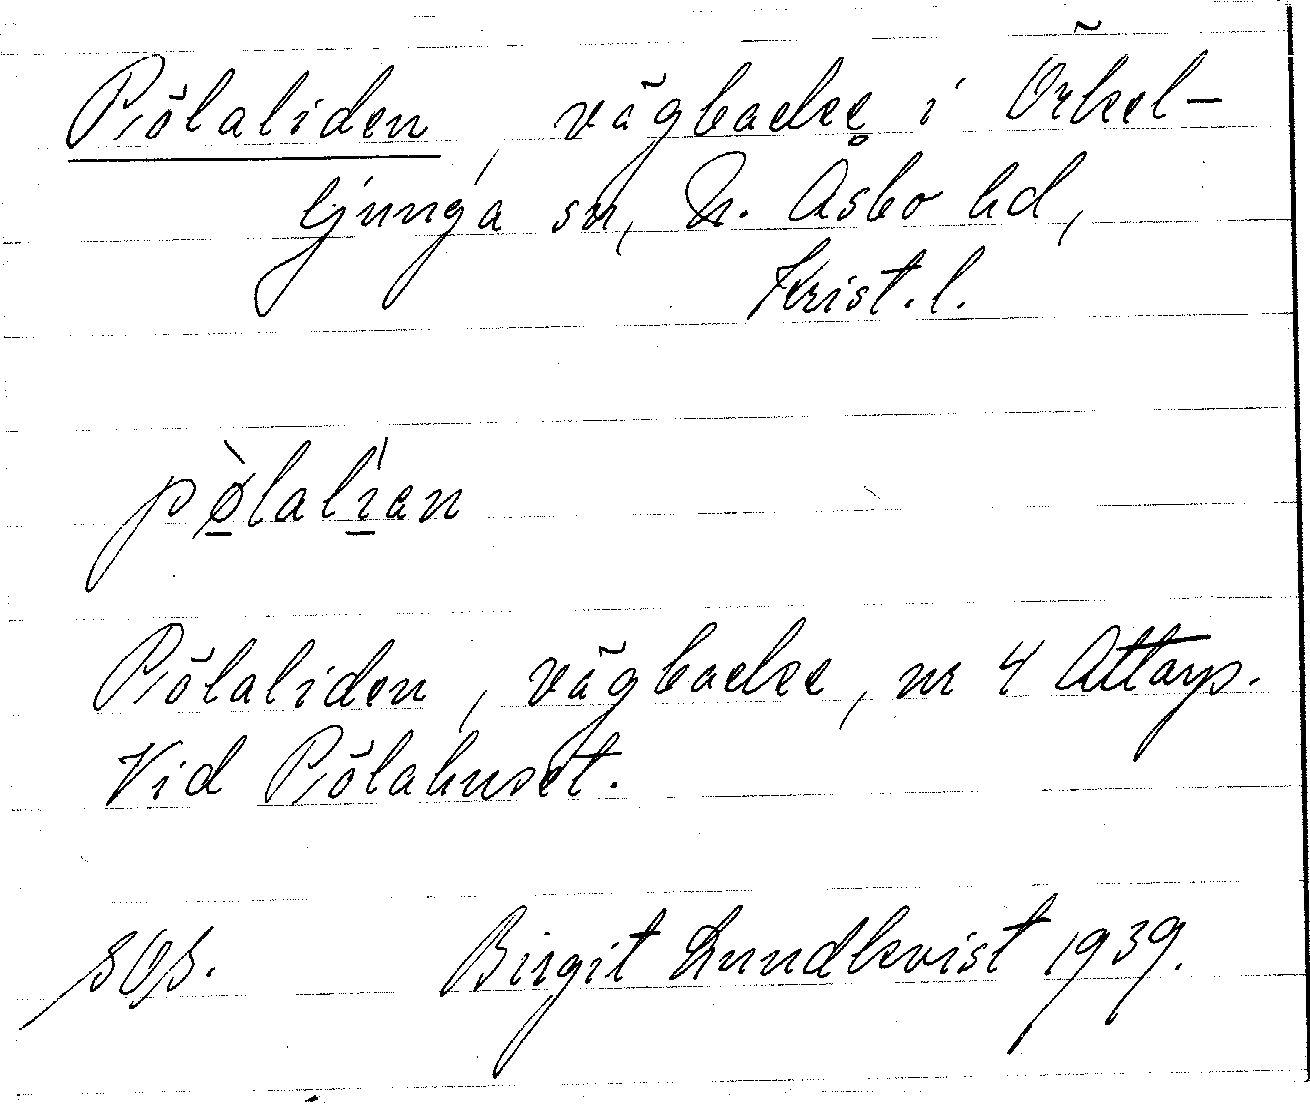 Pölaliden, vägbacke i Örkel-
ljunga sn, N. Åsbo hd,
Krist. l.
pø̀lalían
Pölaliden, vägbacke, nr 4 Attarp.
Vid Pölahuset.
Birgit Lundkvist 1939.